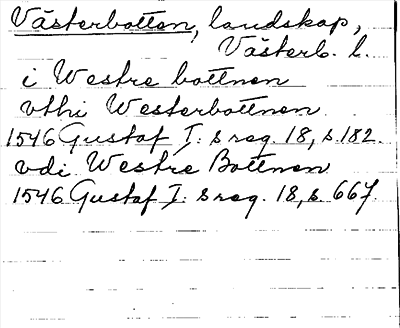 Västerbotten, landskap,
Västerb. l.
i Westre bottnen
vthi Westerbottnen
1546 Gustaf I: s reg. 18, s. 182.
vdi Westre Bottnen
1546 Gustaf I: s reg. 18, s. 667.